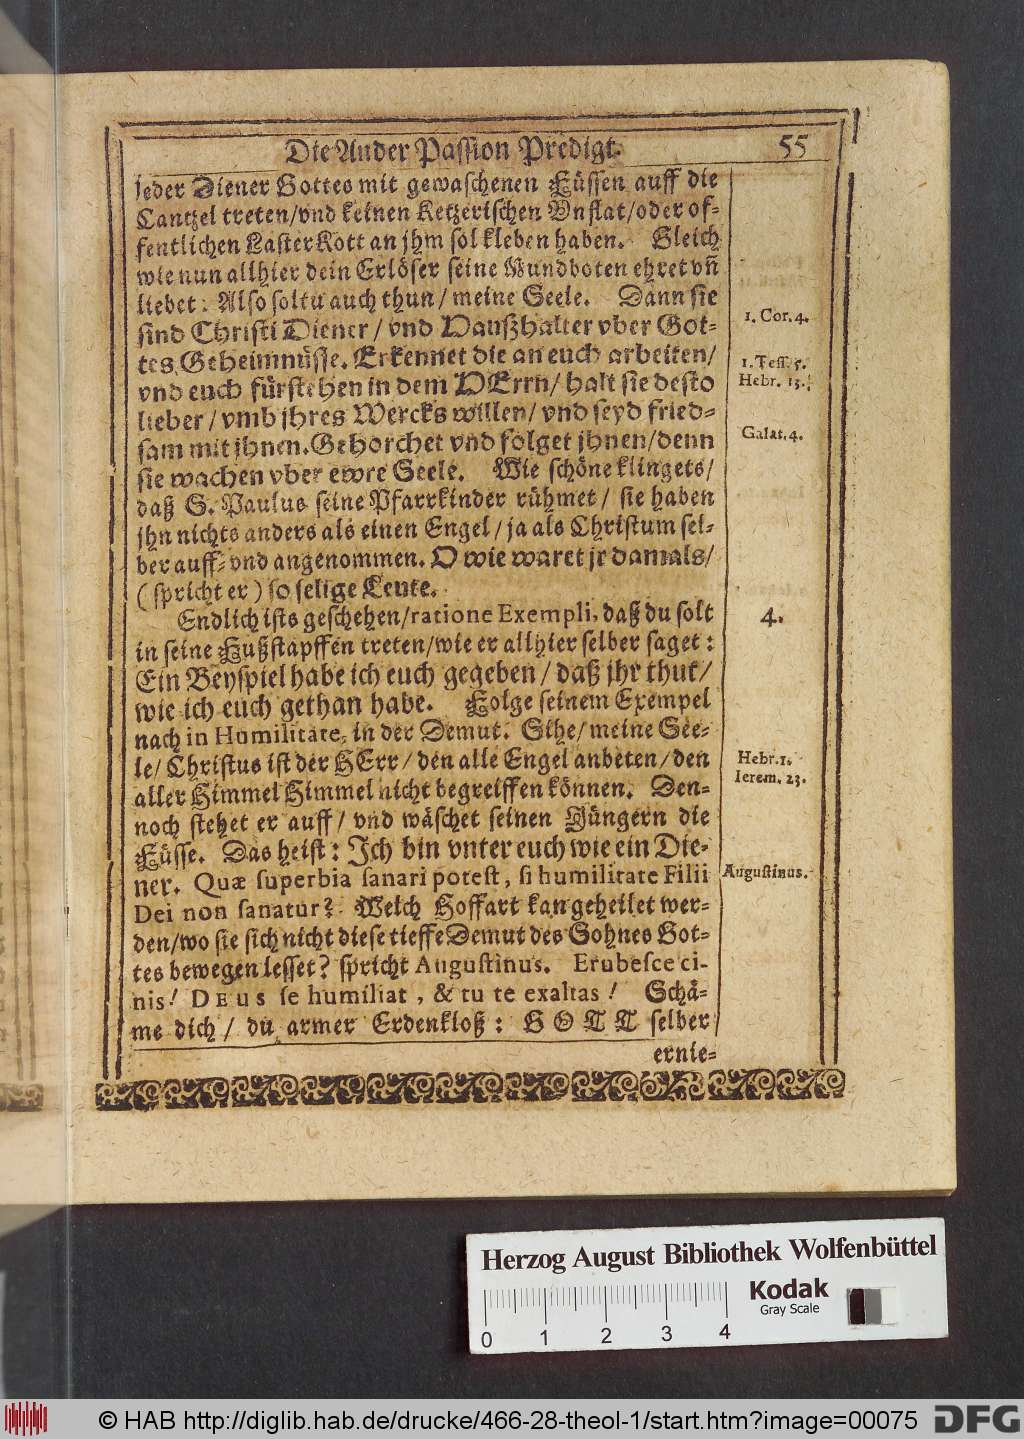 Die Ander Passion Predigt. 55
jeder Diener Gottes mit gewaschenen Füssen auff die
Cantzel treten/vnd keinen Ketzerischen Vnflat/oder of-
fentlichen LasterKott an jhm sol kleben haben. Gleich
wie nun allhier dein Erlöser seine Mundboten ehret vñ
liebet: Also soltu auch thun/ meine Seele. Dann sie
sind Christi Diener/ vnd Haußhalter vber Got-
tes Geheimnüsse. Erkennet die an euch arbeiten/
vnd euch fürstehen in dem HErrn/ halt sie desto
lieber/ vmb jhres Wercks willen/ vnd seyd fried-
sam mit jhnen. Gehorchet vnd folget jhnen/denn
sie wachen vber ewre Seele. Wie schöne klingets/
daß S. Paulus seine Pfarrkinder rühmet/ sie haben
jhn nichts anders als einen Engel/ ja als Christum sel-
ber auff-vnd angenommen. O wie waret jr damals/
(spricht er) so selige Leute.
Endlich ists geschehen/ratione Exempli, daß du solt
in seine Fußstapffen treten/wie er allhier selber saget:
Ein Beyspiel habe ich euch gegeben/ daß jhr thut/
wie ich euch gethan habe. Folge seinem Exempel
nach in Humilitate, in der Demut. Sihe/ meine See-
le/ Christus ist der HErr/ den alle Engel anbeten/den
aller Himmel Himmel nicht begreiffen können. Den-
noch stehet er auff/ vnd wäschet seinen Jüngern die
Füsse. Das heist: Ich bin vnter euch wie ein Die-
ner. Quæ superbia sanari potest, si humilitate Filii
Dei non sanatur? Welch Hoffart kan geheilet wer-
den/wo sie sich nicht diese tieffe Demut des Sohnes Got-
tes bewegen lesset? spricht Augustinus. Erubesce ci-
nis! DEUS se humiliat, & tu te exaltas! Schä-
me dich/ du armer Erdenkloß: GOTT selber
ernie-
1. Cor. 4.
1. Tess. 5.
Hebr. 13.
Galat. 4.
4.
Hebr. 1.
Ierem. 23.
Augustinus.
Herzog August Bibliothek Wolfenbüttel
Kodak
Gray Scale
0 1 2 3 4
© HAB http://diglib.hab.de/drucke/466-28-theol-1/start.htm?image=00075
DFG